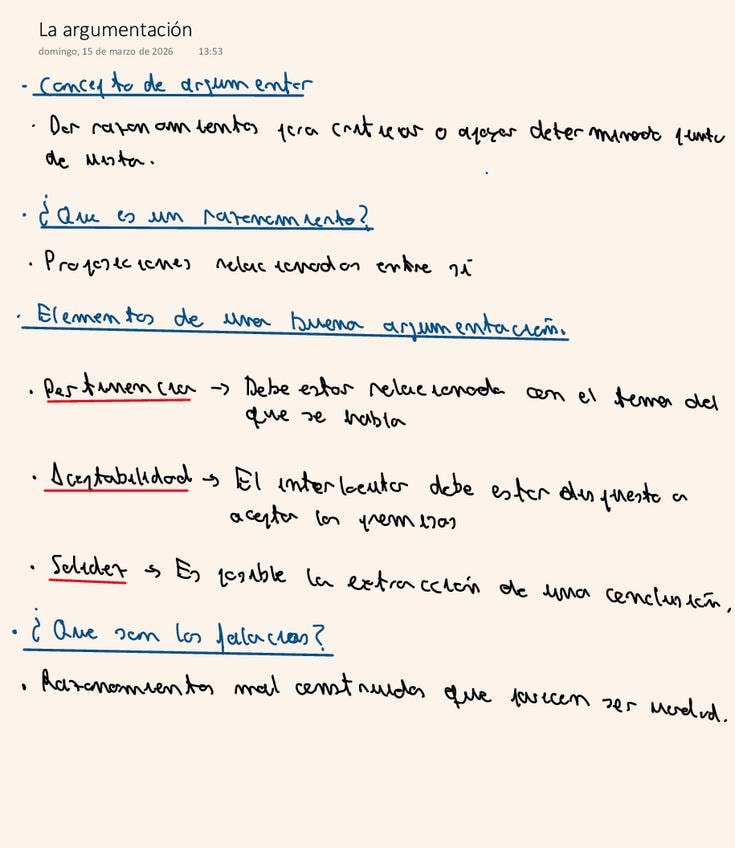 La argumentación
domingo, 15 de marzo de 2026 13:53
· Concepto de argumentar
· Dar razonamientos para criticar o apoyar determinado punto
de vista.
· ¿Que es un razonamiento?
· Proposiciones relacionadas entre sí
· Elementos de una buena argumentación.
· Pertinencia → Debe estar relacionada con el tema del
que se habla
· Aceptabilidad → El interlocutor debe estar dispuesto a
aceptar las premisas
· Solidez → Es posible la extracción de una conclusión.
· ¿Que son las falacias?
· Razonamientos mal construidos que parecen ser verdad.